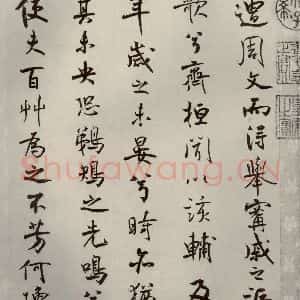 遭周文而得舉甯戚之謳
歌兮齊桓聞以該輔及
年歲之未晏兮時亦猶
其未央恐鵜鴂之先鳴兮
使夫百艸為之不芳何瓊
Shufawang.CN